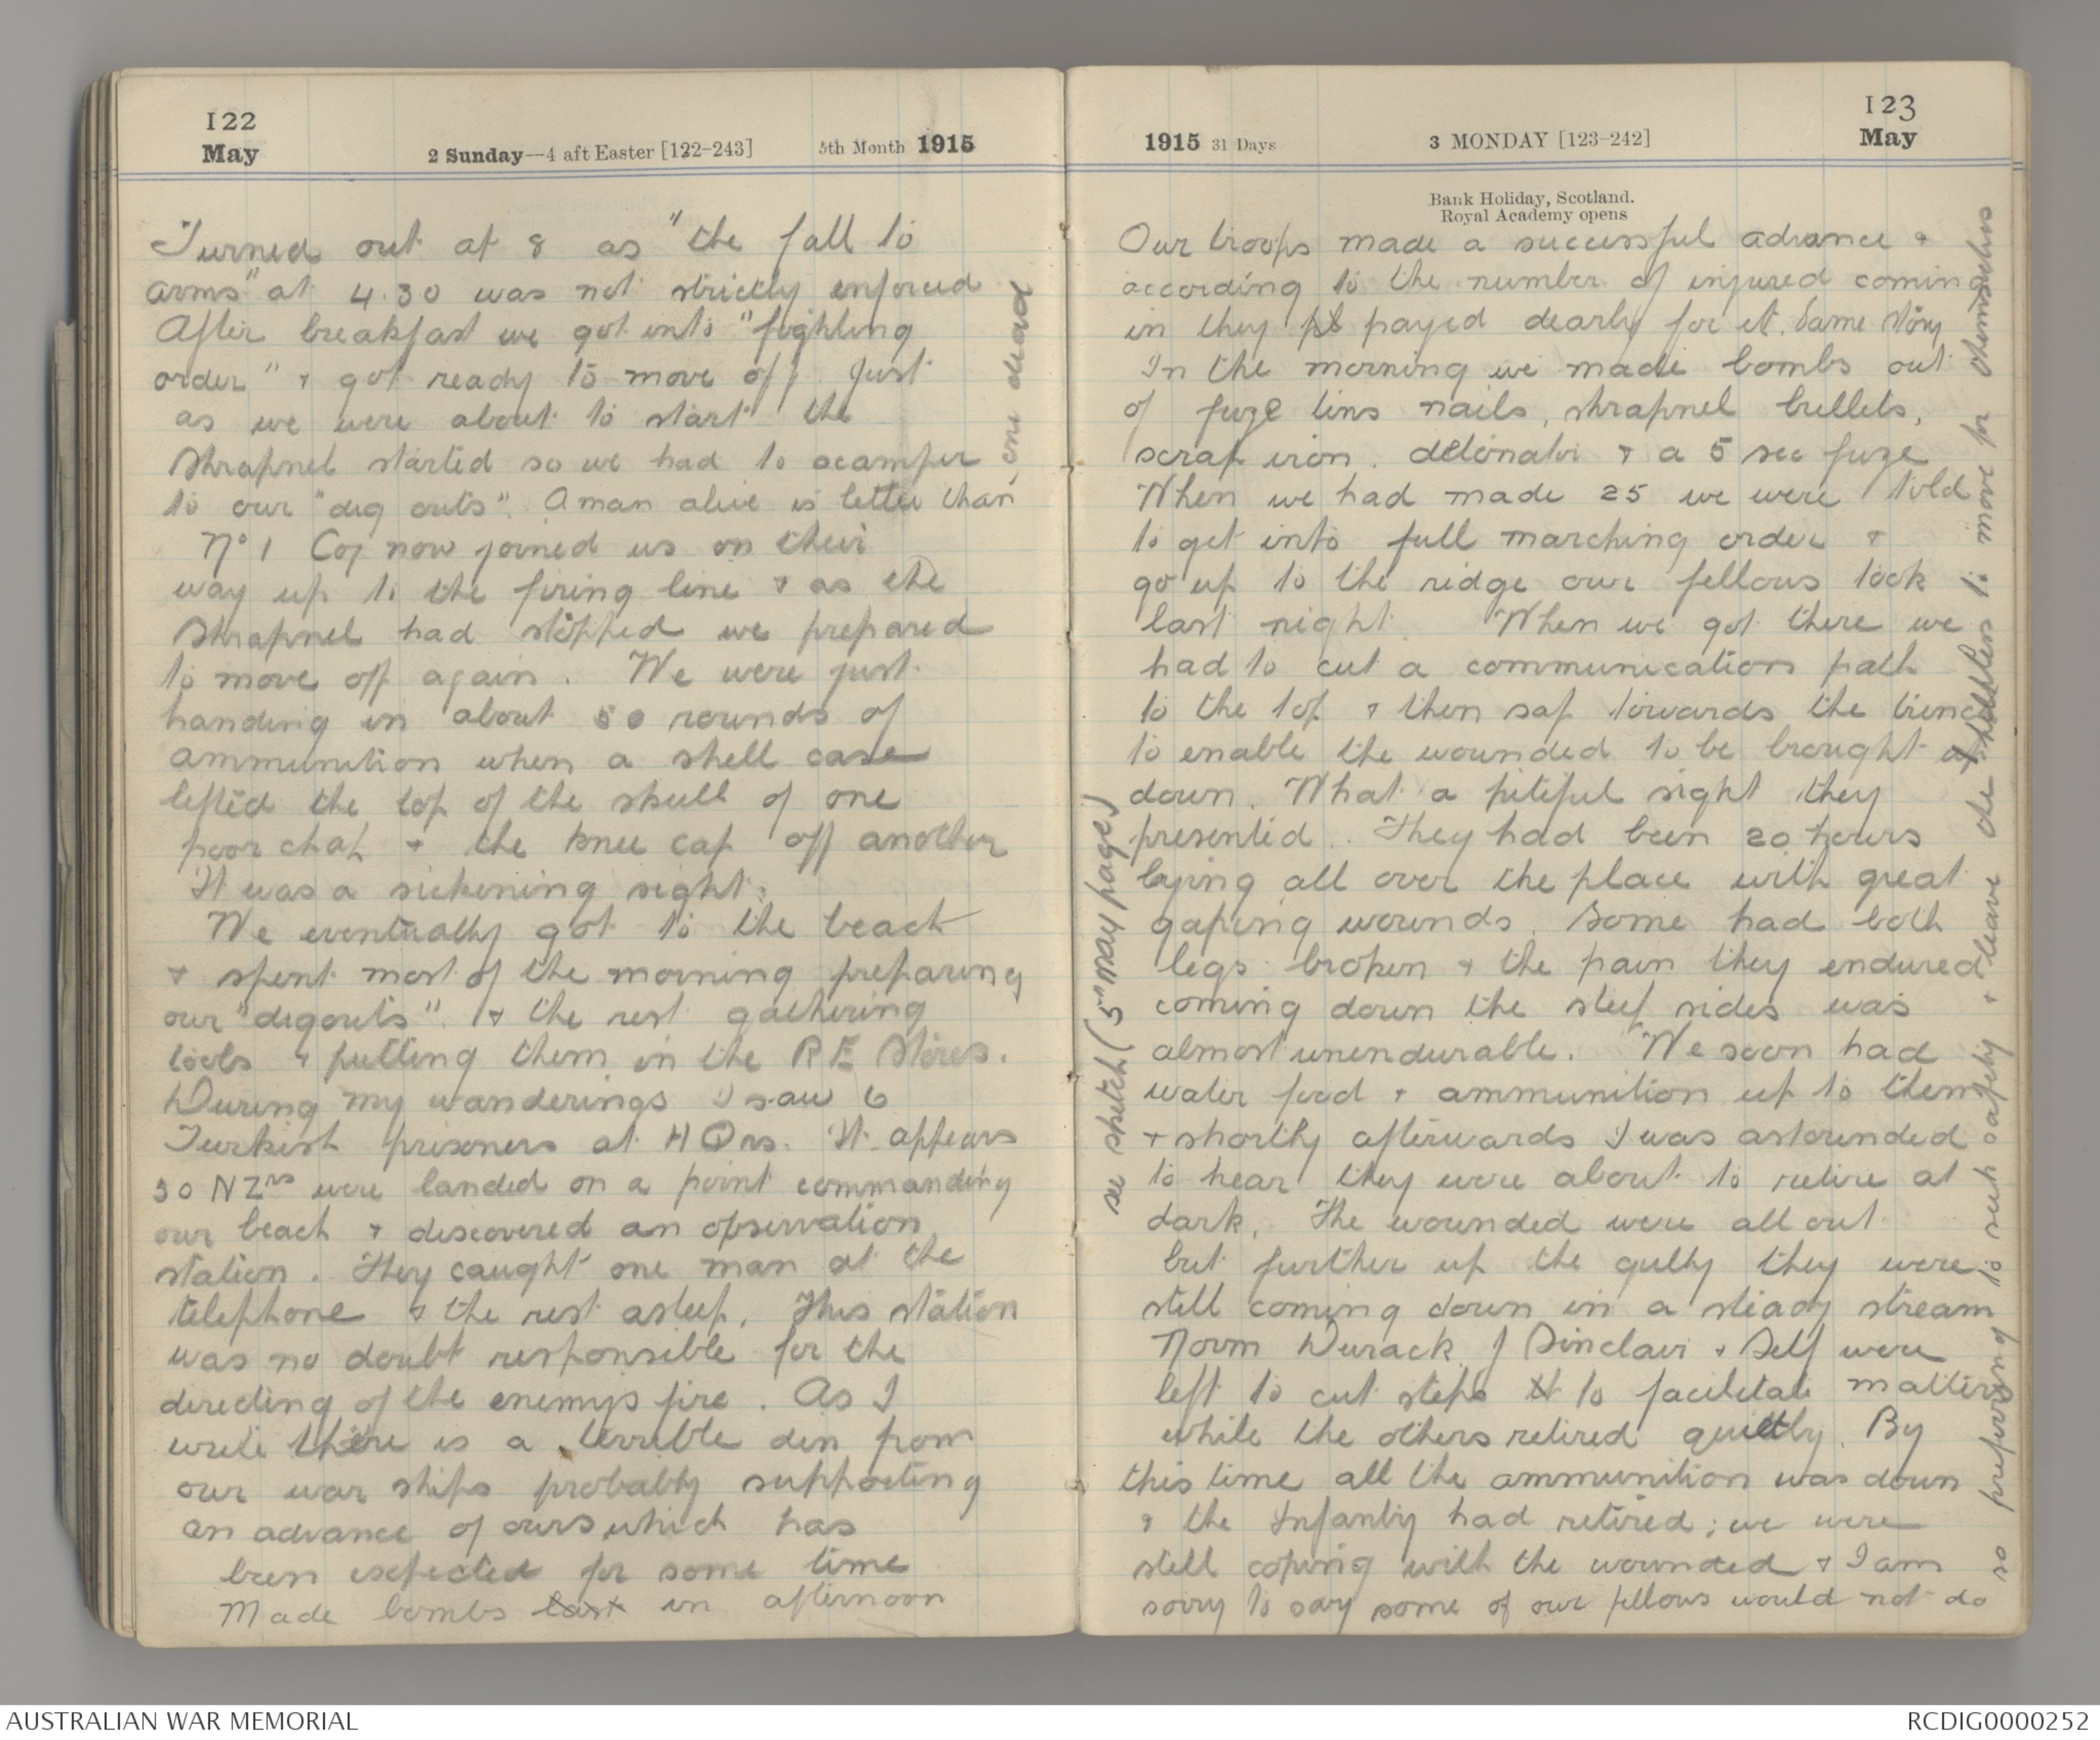 122
May
2 Sunday—4 aft Easter [122-243]
5th Month 1915
Turned out at 8 as "the fall to
arms" at 4.30 was not strictly enforced
After breakfast we got into "fighting
order" & got ready to move off. Just
as we were about to start the
shrapnel started so we had to scamper
to our "dig outs". A man alive is better than
one dead
No 1 Coy now joined us on their
way up to the firing line & as the
shrapnel had stopped we prepared
to move off again. We were just
handing in about 50 rounds of
ammunition when a shell case
lifted the top of the skull of one
poor chap & the knee cap off another
It was a sickening sight.
We eventually got to the beach
& spent most of the morning preparing
our "digouts". & the rest gathering
tools & putting them in the RE Stores.
During my wanderings I saw 6
Turkish prisoners at HQrs. It appears
30 NZrs were landed on a point commanding
our beach & discovered an observation
station. They caught one man at the
telephone & the rest asleep. This station
was no doubt responsible for the
directing of the enemys fire. As I
write there is a terrible din from
our war ships probably supporting
an advance of ours which has
been expected for some time
Made bombs last in afternoon
1915 31 Days
3 MONDAY [123-242]
123
May
Bank Holiday, Scotland.
Royal Academy opens
Our troops made a successful advance &
according to the number of injured coming
in they pd payed dearly for it. Same story
In the morning we made bombs out
of fuze tins nails, shrapnel bullets,
scrap iron. detonator & a 5 sec fuze
When we had made 25 we were told
to get into full marching order &
go up to the ridge our fellows took
last night. When we got there we
had to cut a communication path
to the top & then sap towards the trench
to enable the wounded to be brought
down. What a pitiful sight they
presented. They had been 20 hours
laying all over the place with great
gaping wounds. Some had both
legs broken & the pain they endured
coming down the steep sides was
almost unendurable. We soon had
water food & ammunition up to them
& shortly afterwards I was astounded
to hear they were about to retire at
dark. The wounded were all out
but further up the gully they were
still coming down in a steady stream
Norm Durack J Sinclair & Self were
left to cut steps to facilitate matters
while the others retired quietly. By
this time all the ammunition was down
& the Infantry had retired; we were
still coping with the wounded & I am
sorry to say some of our fellows would not do
so preferring to seek safety & leave the helpless to move for themselves
see sketch (5th May page)
AUSTRALIAN WAR MEMORIAL
RCDIG0000252